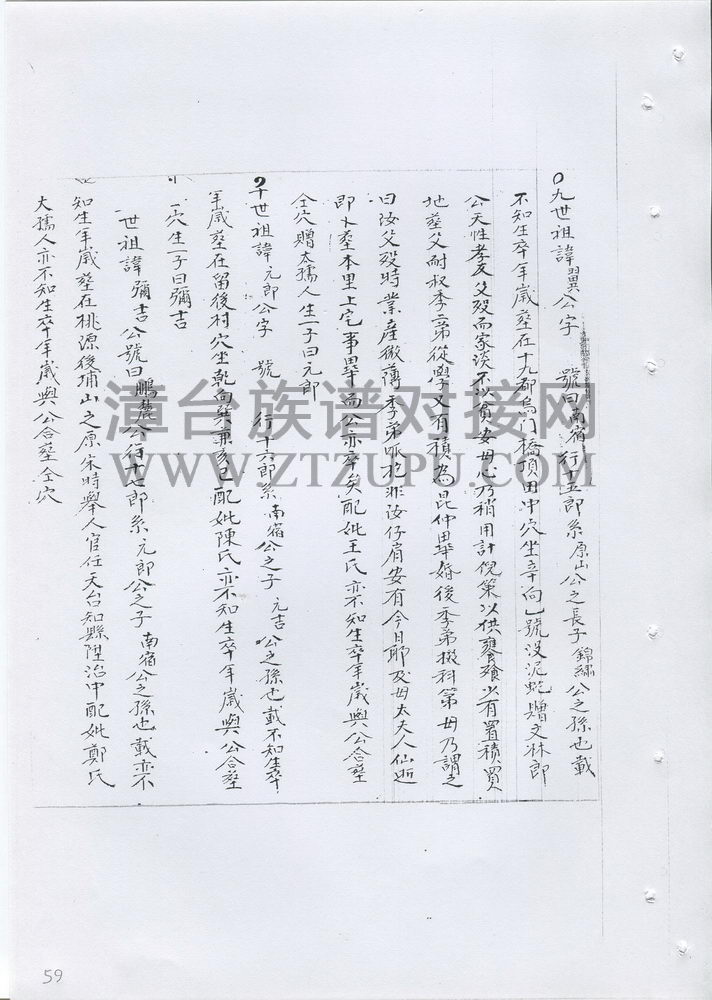 九世祖諱翼公字 號曰南宿行十五郎系原山公之長子錦繡公之孫也載
不知生卒年嵗塟在十九都烏门橋頂田中穴坐辛向乙號没泥蛇贈文林郎
公天性孝友父殁而家淡不以貧安母心乃稍用計倪策以供饔飧少有置積買
地塟父耐叔季二弟從學又有積為昆仲畢婚後季弟掇科第母乃謂之
曰汝父殁時業産微薄季弟呱抱非汝仔肩安有今日耶及母太夫人仙逝
即卜塟本里上宅事畢而公亦卒矣配妣王氏亦不知生卒年嵗與公合塟
仝穴贈太孺人生一子曰元郎
十世祖諱元郎公字 號 行十六郎系南宿公之子元吉公之孫也載不知生卒
年嵗塟在留後村穴坐乾向巽兼亥巳配妣陳氏亦不知生卒年嵗與公合塟
穴生一子曰彌吉
世祖諱彌吉公號曰鵬麓公行十七郎系元郎公之子南宿公之孫也載亦不
知生年嵗塟在桃源後埔山之原宋時舉人官任天台知縣陞治中配妣鄭氏
大孺人亦不知生卒年嵗與公合塟仝穴
漳台族谱对接网
WWW.ZTZUPU.COM
59